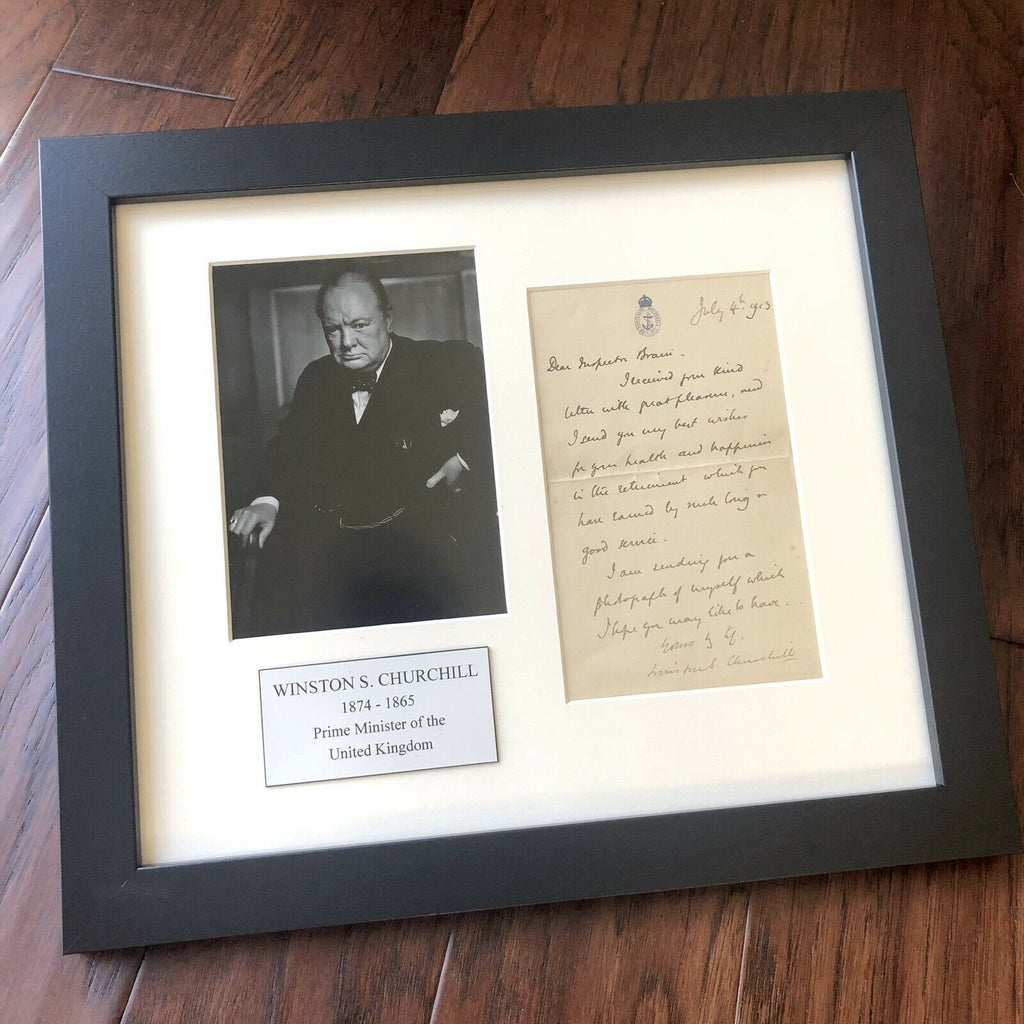 WINSTON S. CHURCHILL
1874 - 1865
Prime Minister of the
United Kingdom
July 4th 1913
Dear Inspector
I received your kind
letter with great pleasure, and
I send you my best wishes
for your health and happiness
in the retirement which you
have earned by such long &
good service.
I am sending you a
photograph of myself which
I hope you may like to have.
Yours
Winston S. Churchill